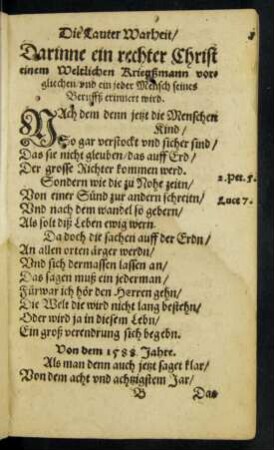 Die Lauter Warheit/
Darinne ein rechter Christ
einem Weltlichen Kriegßmann vor-
gliechen/ vnd ein jeder Mensch seines
Beruffß erinnert wird.
NAch dem denn jetzt die Menschen
Kind/
So gar verstockt vnd sicher sind/
Das sie nicht gleuben/ das auff Erd/
Der grosse Richter kommen werd.
Sondern wie die zu Nohe zeitn/
2. Pet. 5.
Von einer Sünd zur andern schreitn/
Luce 7.
Vnd nach dem wandel so gebern/
Als solt diß Leben ewig wern.
Da doch die sachen auff der Erdn/
An allen orten ärger werdn/
Vnd sich dermassen lassen an/
Das sagen muß ein jederman/
Fürwar ich hör den Herren gehn/
Die Welt die wird nicht lang bestehn/
Oder wird ja in diesem Lebn/
Ein groß verendrung sich begebn.
Von dem 1588. Jahre.
Als man denn auch jetzt saget klar/
Von dem acht vnd achtzigstem Jar/
B Das